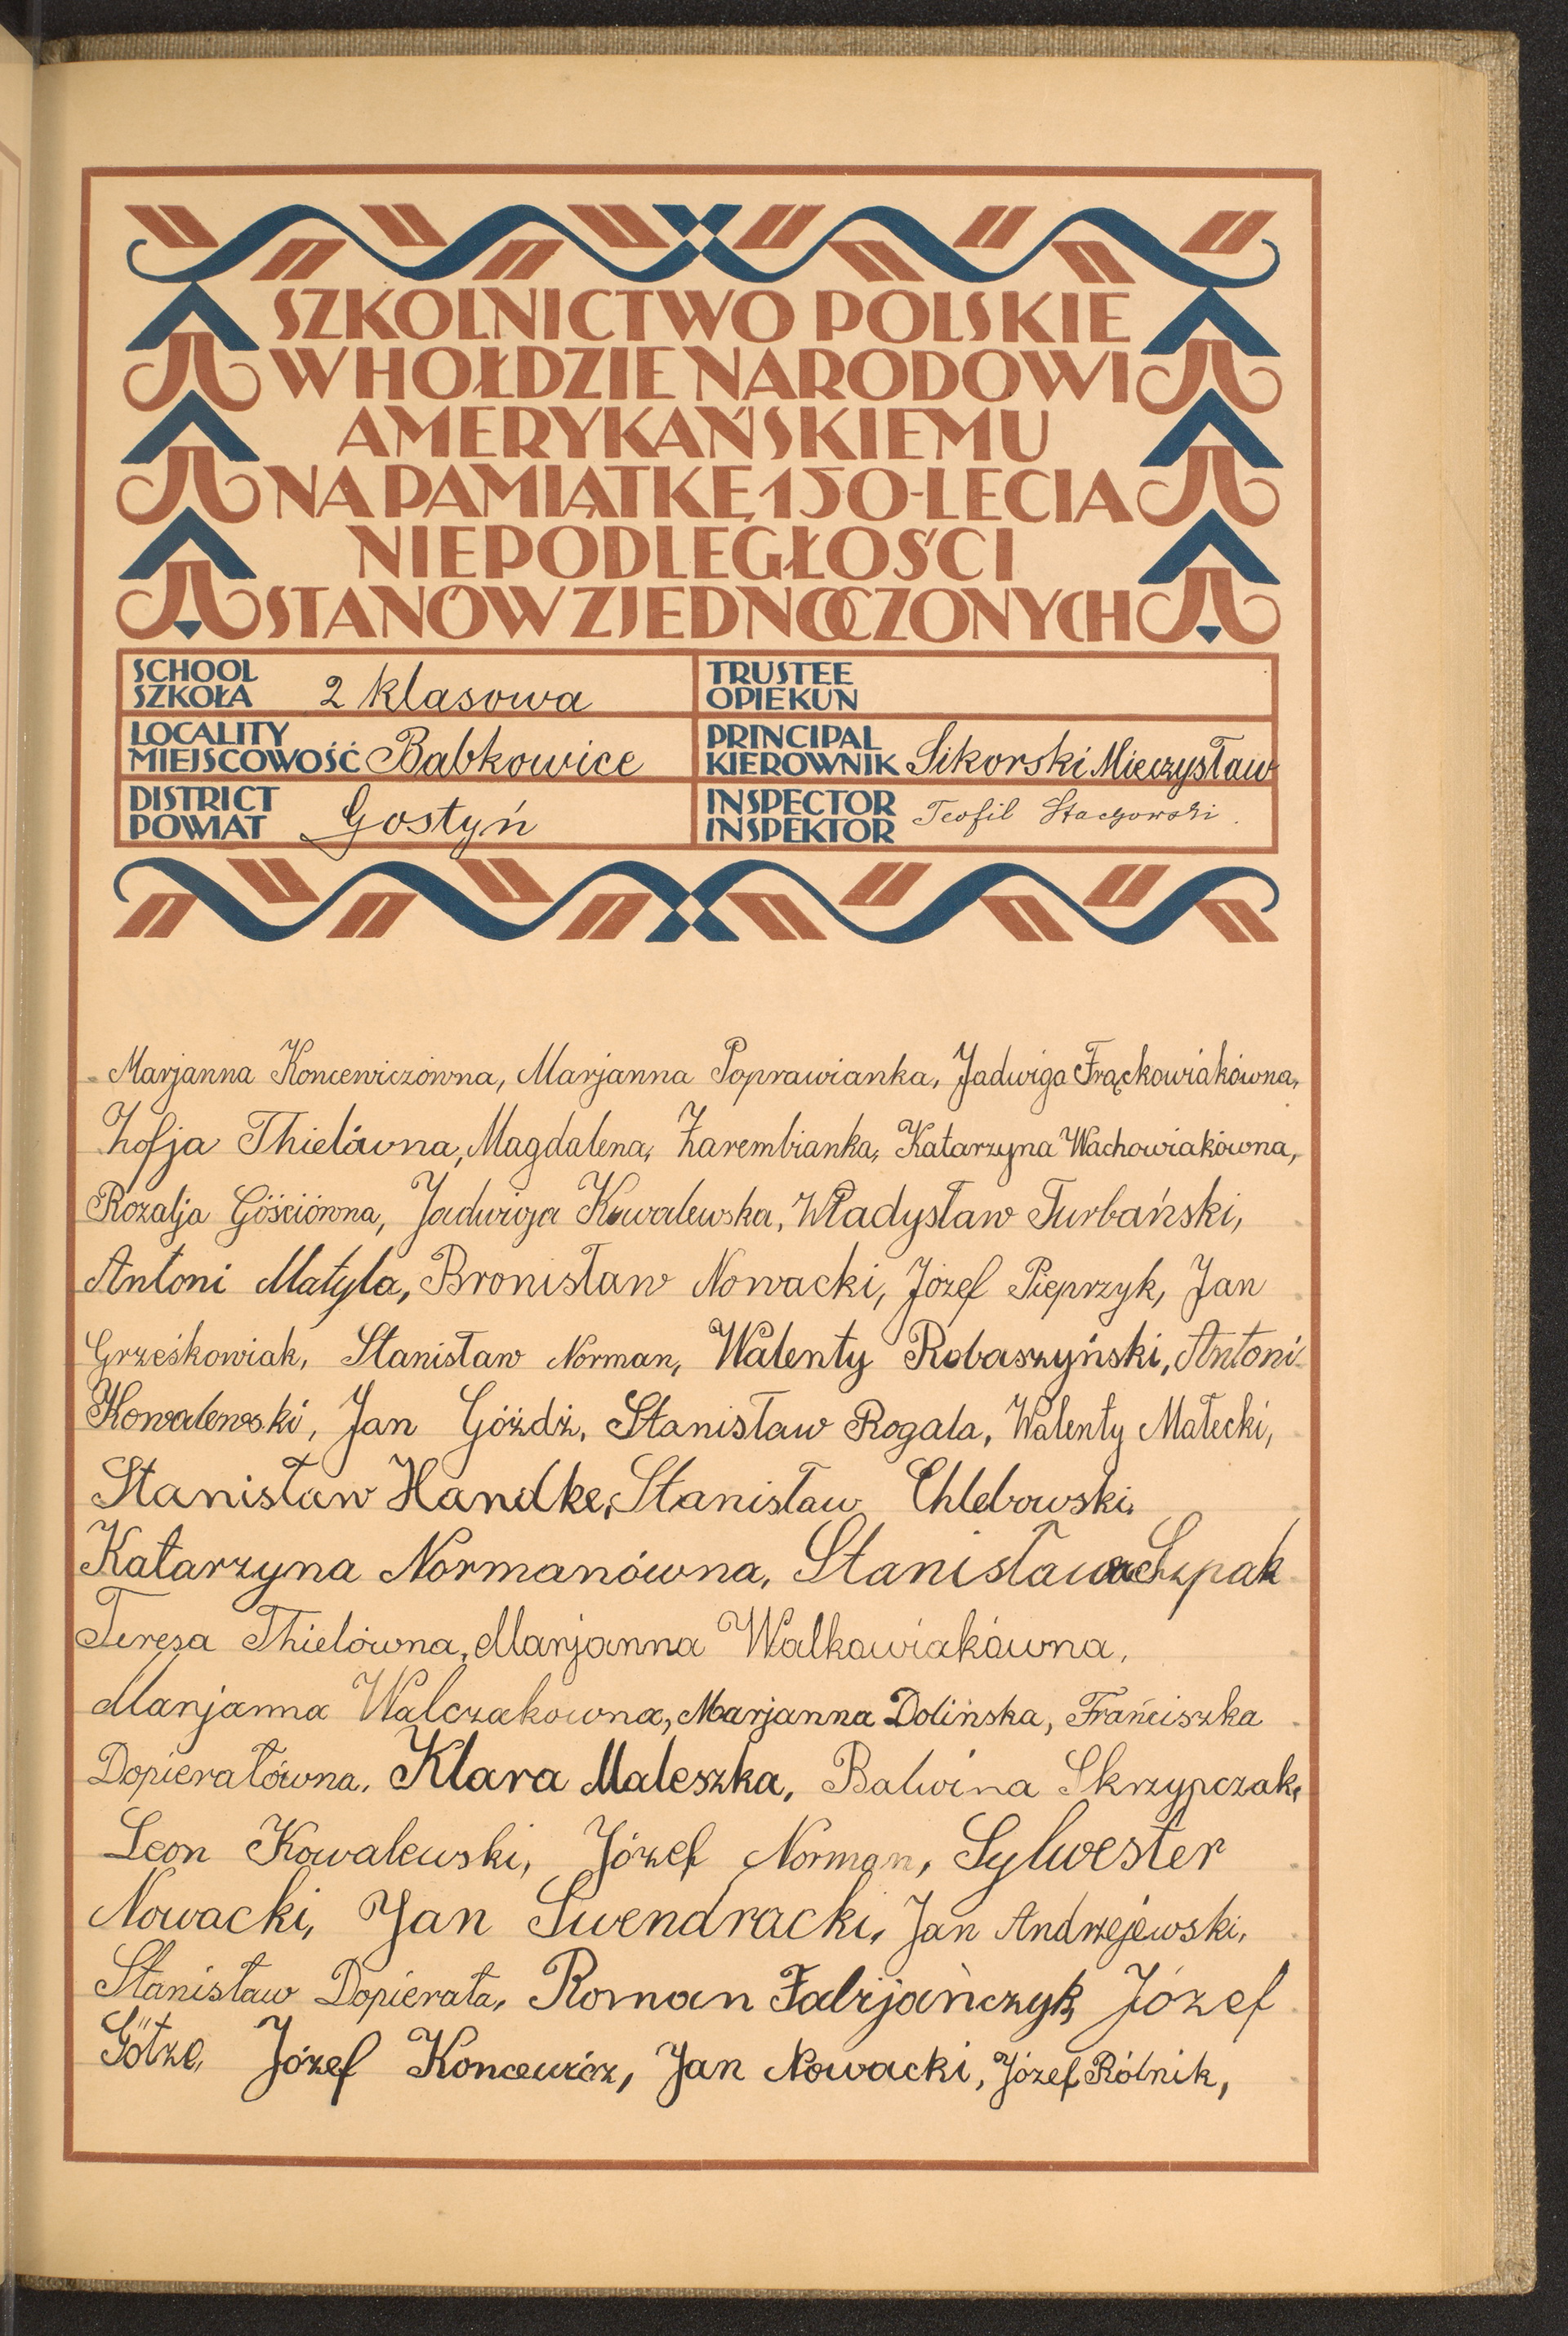 SZKOLNICTWO POLSKIE
W HOŁDZIE NARODOWI
AMERYKAŃSKIEMU
NA PAMIĄTKĘ 150-LECIA
NIEPODLEGŁOŚCI
STANÓW ZJEDNOCZONYCH
SCHOOL
SZKOŁA 2 klasowa
TRUSTEE
OPIEKUN
LOCALITY
MIEJSCOWOŚĆ Babkowice
PRINCIPAL
KIEROWNIK Sikorski Mieczysław
DISTRICT
POWIAT Gostyń
INSPECTOR
INSPEKTOR Teofil Stachowski.
Marjanna Koncewiczówna, Marjanna Poprawianka, Jadwiga Frąckowiakówna,
Zofja Thielówna, Magdalena, Zarembianka, Katarzyna Wachowiakówna,
Rozalja Góściówna, Jadwiga Kowalewska, Władysław Turbański,
Antoni Matyla, Bronisław Nowacki, Józef Pieprzyk, Jan
Grześkowiak, Stanisław Norman, Walenty Robaszyński, Antoni
Kowalewski, Jan Góźdź, Stanisław Rogala, Walenty Małecki,
Stanisław Handke, Stanisław Chlebowski,
Katarzyna Normanówna, Stanisława Szpak
Teresa Thielówna, Marjanna Walkowiakówna,
Marjanna Walczakowna, Marjanna Dolińska, Frańciszka
Dopierałówna, Klara Maleszka, Balwina Skrzypczak,
Leon Kowalewski, Józef Norman, Sylwester
Nowacki, Jan Swendracki, Jan Andrzejewski,
Stanisław Dopierała, Roman Fabijańczyk, Józef
Götze, Józef Koncewicz, Jan Nowacki, Józef Rólnik,